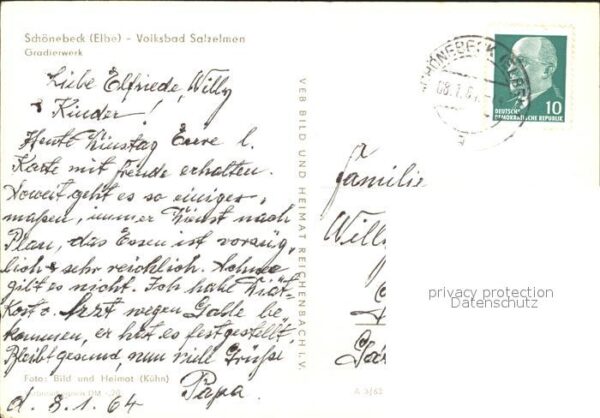 Schönebeck (Elbe) - Volksbad Salzelmen
Gradierwerk
Liebe Elfriede, Willy
Kinder!
Heute Dienstag Eure l.
Karte mit Freude erhalten.
Soweit geht es so einiger-
maßen, immer Dienst nach
Plan, das Essen ist vorzüg-
lich & sehr reichlich. Schnee
gibt es nicht. Ich habe Diät-
Kost v. Arzt wegen Galle be
kommen, er hat es festgestellt.
Bleibt gesund, nun viele Grüße
Papa.
d. 8.1.64
Foto: Bild und Heimat (Kühn)
VEB BILD UND HEIMAT REICHENBACH I. V.
A 3/63
SCHÖNEBECK (ELBE)
10
DEUTSCHE
DEMOKRATISCHE REPUBLIK
Familie
Willy
privacy protection
Datenschutz